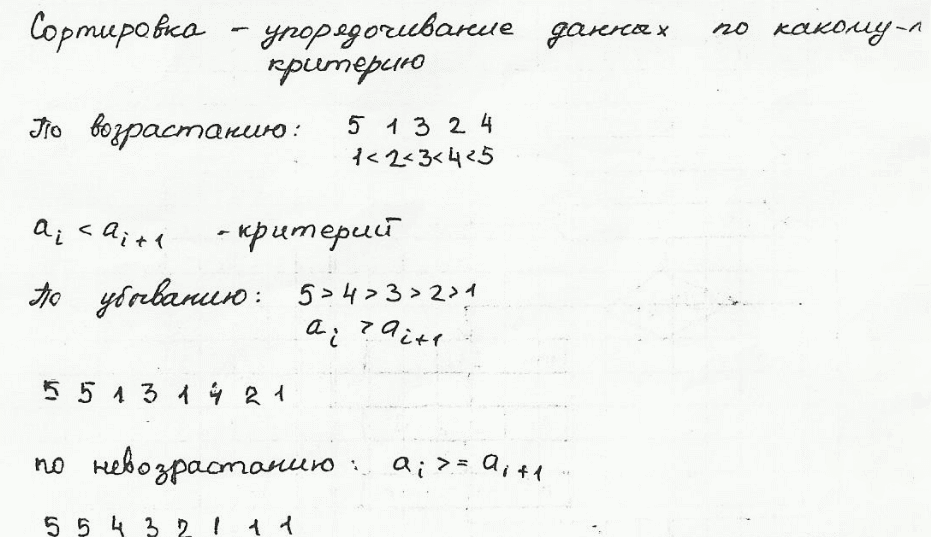 Сортировка - упорядочивание данных по какому-л
критерию
По возрастанию: 5 1 3 2 4
1<2<3<4<5
a_i < a_{i+1} - критерий
По убыванию: 5>4>3>2>1
a_i > a_{i+1}
5 5 1 3 1 4 2 1
по невозрастанию: a_i >= a_{i+1}
5 5 4 3 2 1 1 1